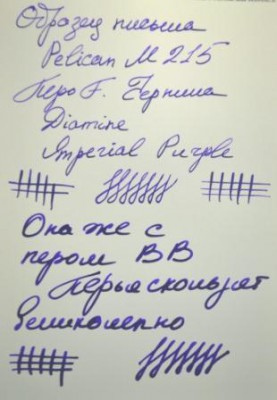 Образец письма
Pelican M 215
Перо F. Чернила
Diamine
Imperial Purple
Она же с
пером BB
Перья скользят
великолепно